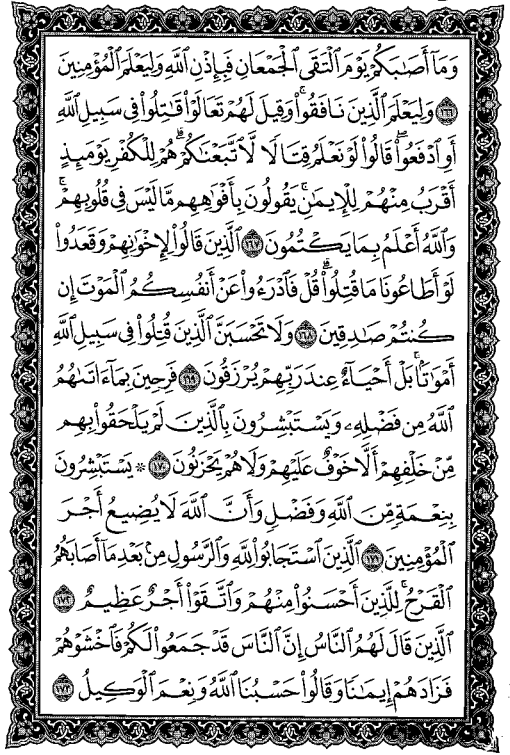 وَمَآ أَصَٰبَكُمْ يَوْمَ ٱلْتَقَى ٱلْجَمْعَانِ فَبِإِذْنِ ٱللَّهِ وَلِيَعْلَمَ ٱلْمُؤْمِنِينَ
١٦٦ وَلِيَعْلَمَ ٱلَّذِينَ نَافَقُوا۟ۚ وَقِيلَ لَهُمْ تَعَالَوْا۟ قَٰتِلُوا۟ فِى سَبِيلِ ٱللَّهِ
أَوِ ٱدْفَعُوا۟ۖ قَالُوا۟ لَوْ نَعْلَمُ قِتَالًا لَّٱتَّبَعْنَٰكُمْۗ هُمْ لِلْكُفْرِ يَوْمَئِذٍ
أَقْرَبُ مِنْهُمْ لِلْإِيمَٰنِۚ يَقُولُونَ بِأَفْوَٰهِهِم مَّا لَيْسَ فِى قُلُوبِهِمْۗ
وَٱللَّهُ أَعْلَمُ بِمَا يَكْتُمُونَ ١٦٧ ٱلَّذِينَ قَالُوا۟ لِإِخْوَٰنِهِمْ وَقَعَدُوا۟
لَوْ أَطَاعُونَا مَا قُتِلُوا۟ۗ قُلْ فَٱدْرَءُوا۟ عَنْ أَنفُسِكُمُ ٱلْمَوْتَ إِن
كُنتُمْ صَٰدِقِينَ ١٦٨ وَلَا تَحْسَبَنَّ ٱلَّذِينَ قُتِلُوا۟ فِى سَبِيلِ ٱللَّهِ
أَمْوَٰتًۢاۚ بَلْ أَحْيَآءٌ عِندَ رَبِّهِمْ يُرْزَقُونَ ١٦٩ فَرِحِينَ بِمَآ ءَاتَىٰهُمُ
ٱللَّهُ مِن فَضْلِهِۦ وَيَسْتَبْشِرُونَ بِٱلَّذِينَ لَمْ يَلْحَقُوا۟ بِهِم
مِّنْ خَلْفِهِمْ أَلَّا خَوْفٌ عَلَيْهِمْ وَلَا هُمْ يَحْزَنُونَ ١٧٠ * يَسْتَبْشِرُونَ
بِنِعْمَةٍ مِّنَ ٱللَّهِ وَفَضْلٍ وَأَنَّ ٱللَّهَ لَا يُضِيعُ أَجْرَ
ٱلْمُؤْمِنِينَ ١٧١ ٱلَّذِينَ ٱسْتَجَابُوا۟ لِلَّهِ وَٱلرَّسُولِ مِنۢ بَعْدِ مَآ أَصَابَهُمُ
ٱلْقَرْحُۚ لِلَّذِينَ أَحْسَنُوا۟ مِنْهُمْ وَٱتَّقَوْا۟ أَجْرٌ عَظِيمٌ ١٧٢
ٱلَّذِينَ قَالَ لَهُمُ ٱلنَّاسُ إِنَّ ٱلنَّاسَ قَدْ جَمَعُوا۟ لَكُمْ فَٱخْشَوْهُمْ
فَزَادَهُمْ إِيمَٰنًا وَقَالُوا۟ حَسْبُنَا ٱللَّهُ وَنِعْمَ ٱلْوَكِيلُ ١٧٣